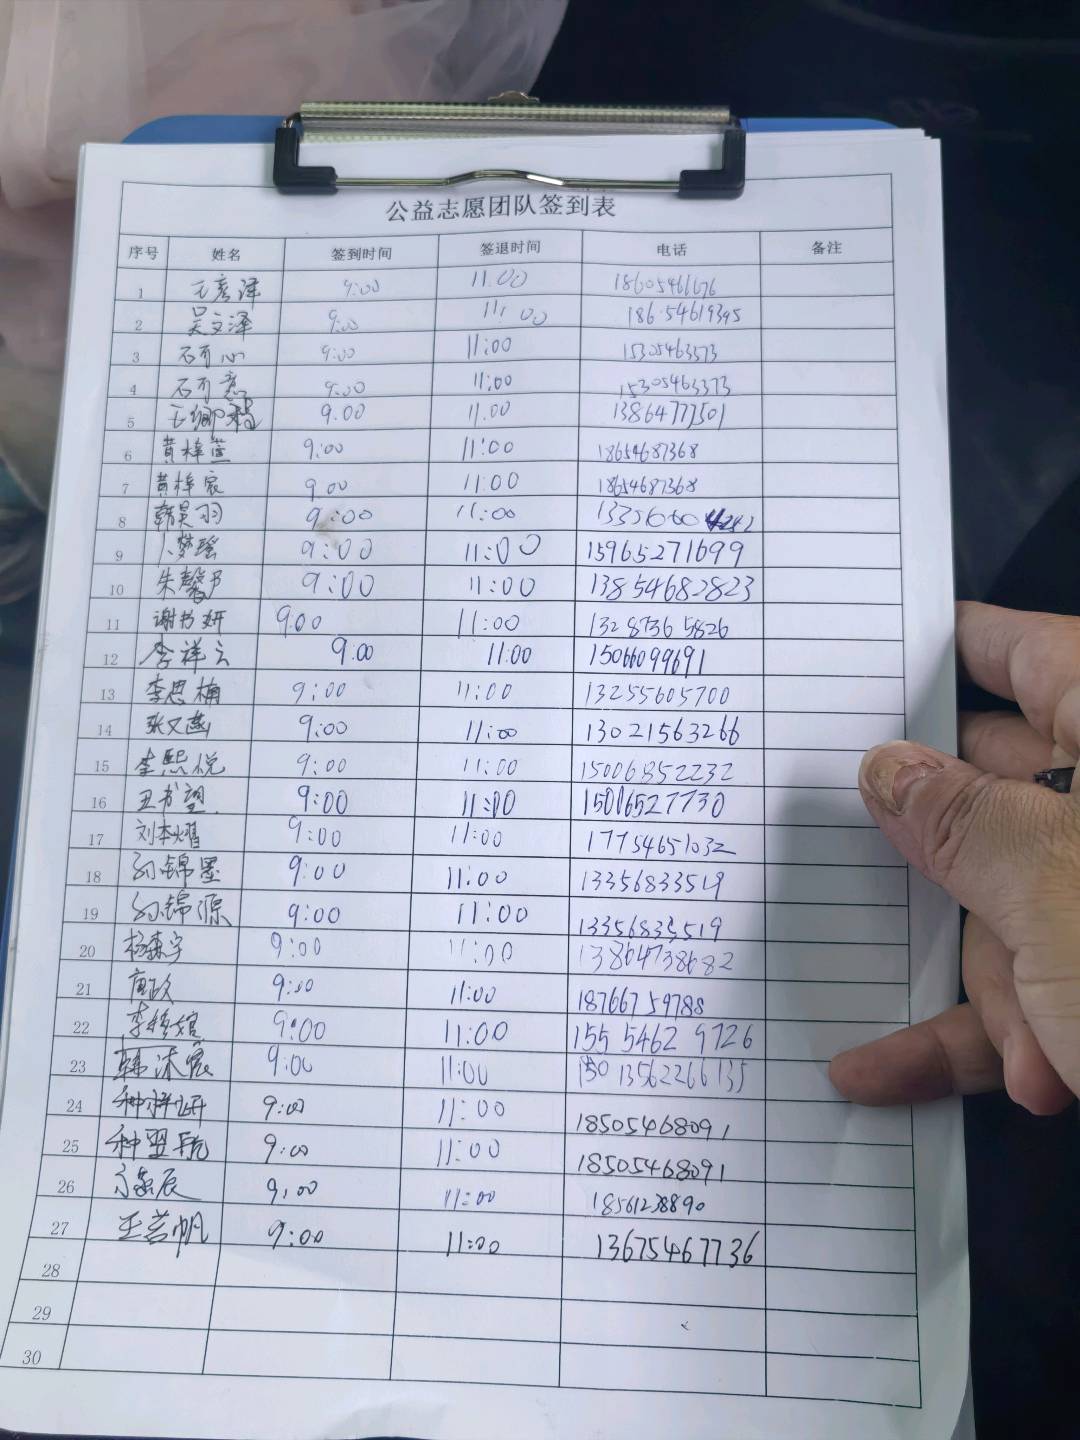 公益志愿团队签到表
序号 姓名 签到时间 签退时间 电话 备注
1 王彦泽 9:00 11:00 18605461676
2 吴文泽 9:00 11:00 18654619395
3 石可心 9:00 11:00 15305463573
4 石可意 9:00 11:00 15305463373
5 王 9.00 11.00 13864777501
6 黄梓萱 9:00 11:00 18654687368
7 黄梓宸 9 00 11:00 18654687368
8 韩昊羽 9:00 11:00
9 卜梦瑶 9:00 11:00 15965271699
10 朱馨予 9:00 11:00 13854682823
11 谢书妍 9:00 11:00 13287365826
12 李祥云 9.00 11:00 15066099691
13 李思楠 9:00 11:00 13255605700
14 张又菡 9:00 11:00 13021563266
15 李熙悦 9:00 11:00 15006852232
16 王书塑 9:00 11:00 15006527730
17 刘本耀 9:00 11:00 17754651032
18 孙锦墨 9:00 11:00 13356833519
19 孙锦源 9:00 11:00 13356833519
20 杨森宇 9:00 11:00 13864738682
21 唐政 9:00 11:00 18766759788
22 李 9:00 11:00 155 5462 9726
23 韩沐宸 9:00 11:00 13562266135
24 种 9:00 11:00 18505468091
25 种盟航 9:00 11:00 18505468091
26 辰 9:00 11:00 18561238890
27 王若帆 9:00 11:00 13675467736
28
29
30